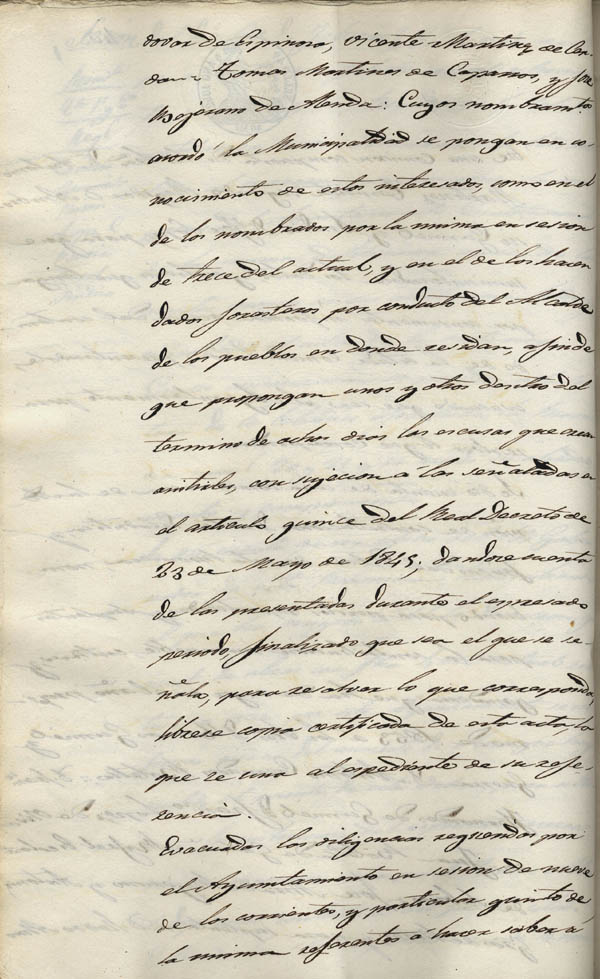 dovar de Espinosa, Vicente Martinez de Cer-
dan = Tomas Martines de Caparros, y Jose
Bojeron de Alenda: Cuyos nombramtos
acordó la Municipalidad se pongan en co-
nocimiento de estos interesados, como en el
de los nombrados por la misma en sesion
de trece del actual, y en el de los hacen
dados forasteros por conducto del Alcalde
de los pueblos en donde residan, a fin de
que propongan unos y otros dentro del
termino de ochos dias las escusas que crean
, con sujecion á las señaladas en
el articulo quince del Real Decreto de
23 de Mayo de 1845; dandose cuenta
de las presentadas durante el espresado
periodo, finalizado que sea el que se se-
ñala, para resolver lo que corresponda,
librese copia certificada de esta acta, la
que se una al espediente de su refe-
rencia.
Evacuadas las diligencias requeridas por
el Ayuntamiento en sesion de nueve
de los corrientes, y particular quinto de
la misma referentes á hacer saber á